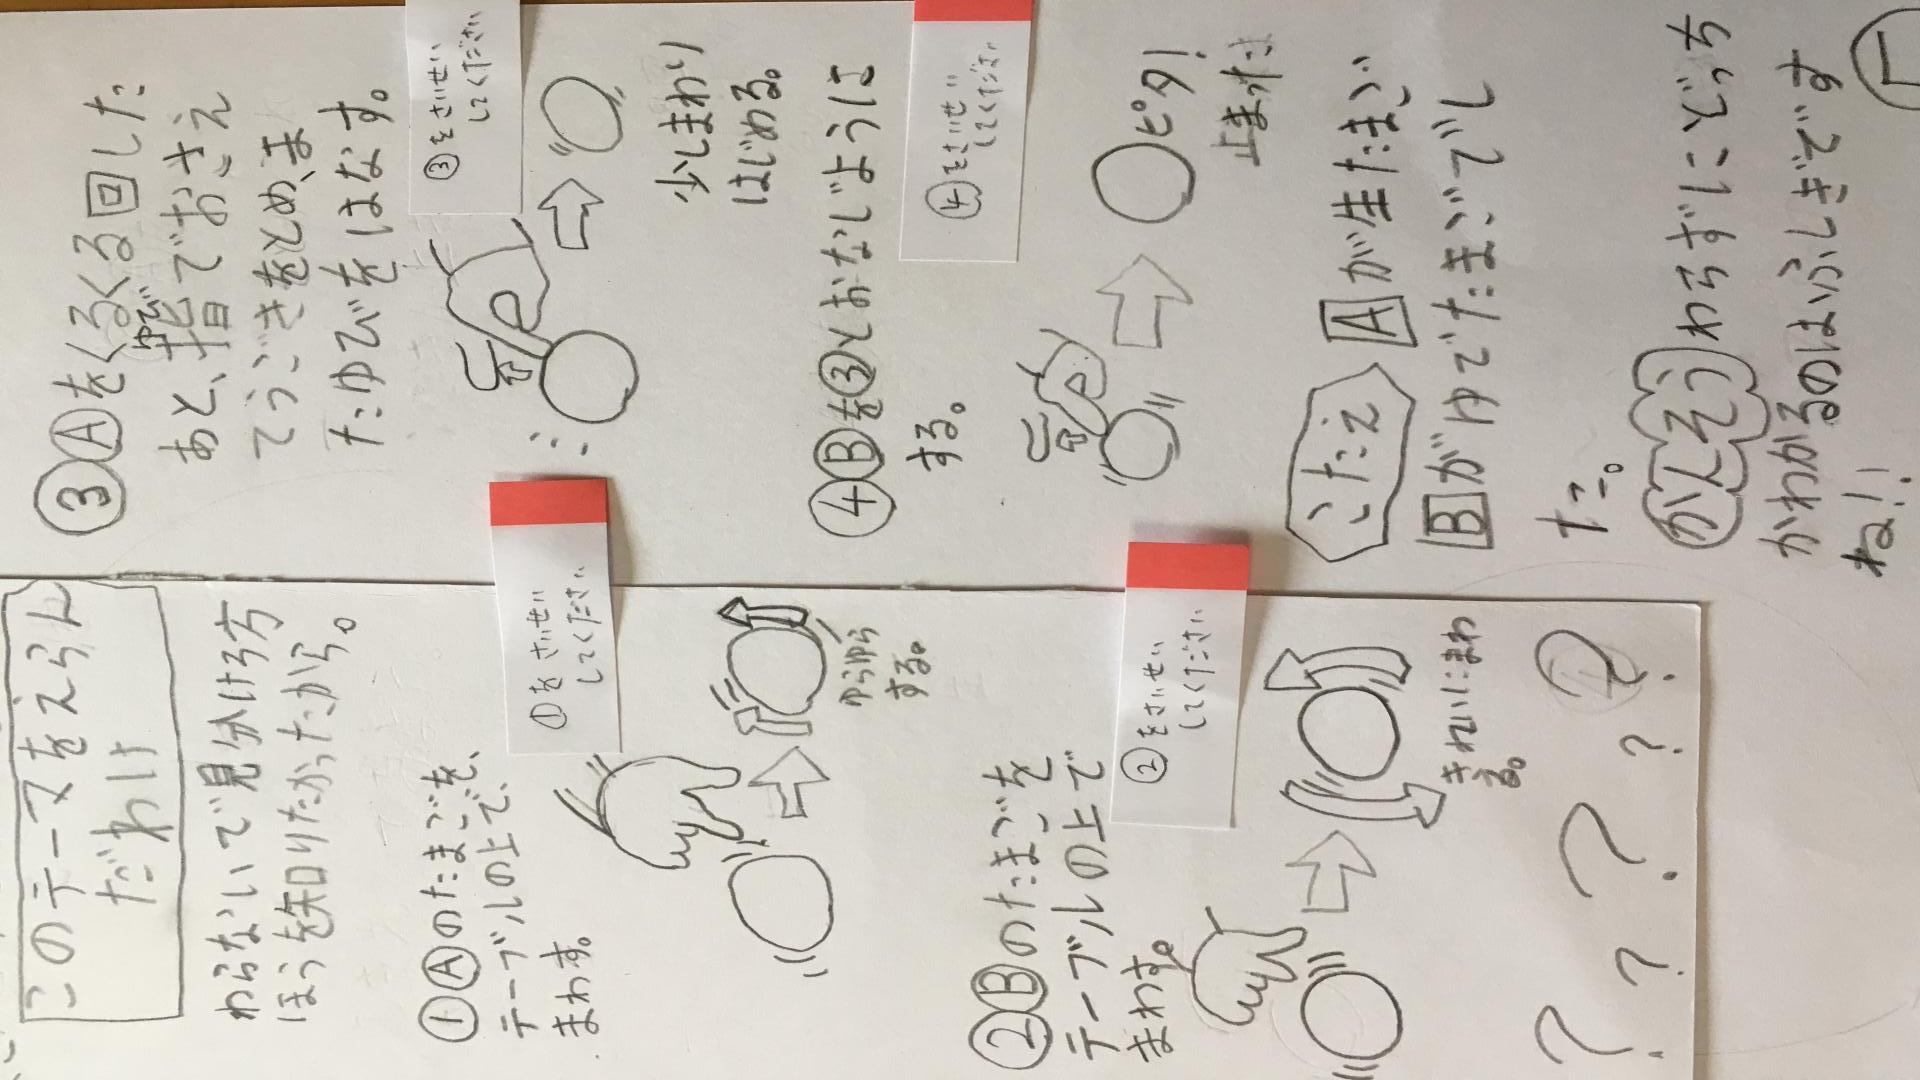 このテーマをえらん
だわけ
わらないで見分けろ方
ほうを知りたかったから。
①Ⓐのたまごを、
テーブルの上で、
まわす。
①をさいせい
してください
ゆらゆら
する。
②Ⓑのたまごを
テーブルの上で
まわす。
②をさいせい
してください
きれいにまわ
る。
? ? ? ? ?
③Ⓐをくるくる回した
あと、指でおさえ
ゆび
てうごきをとめ、ま
たゆびをはなす。
③をさいせい
してください
少しまわり
はじめる。
④Ⓑを③とおなじように
する。
④をさいせい
してくださ
ピタ!
止まった
こたえ Aが生たまご
Bがゆでたまごでし
た。
かんそう わらずにどっち
かわかるのはふしぎです
ね!!